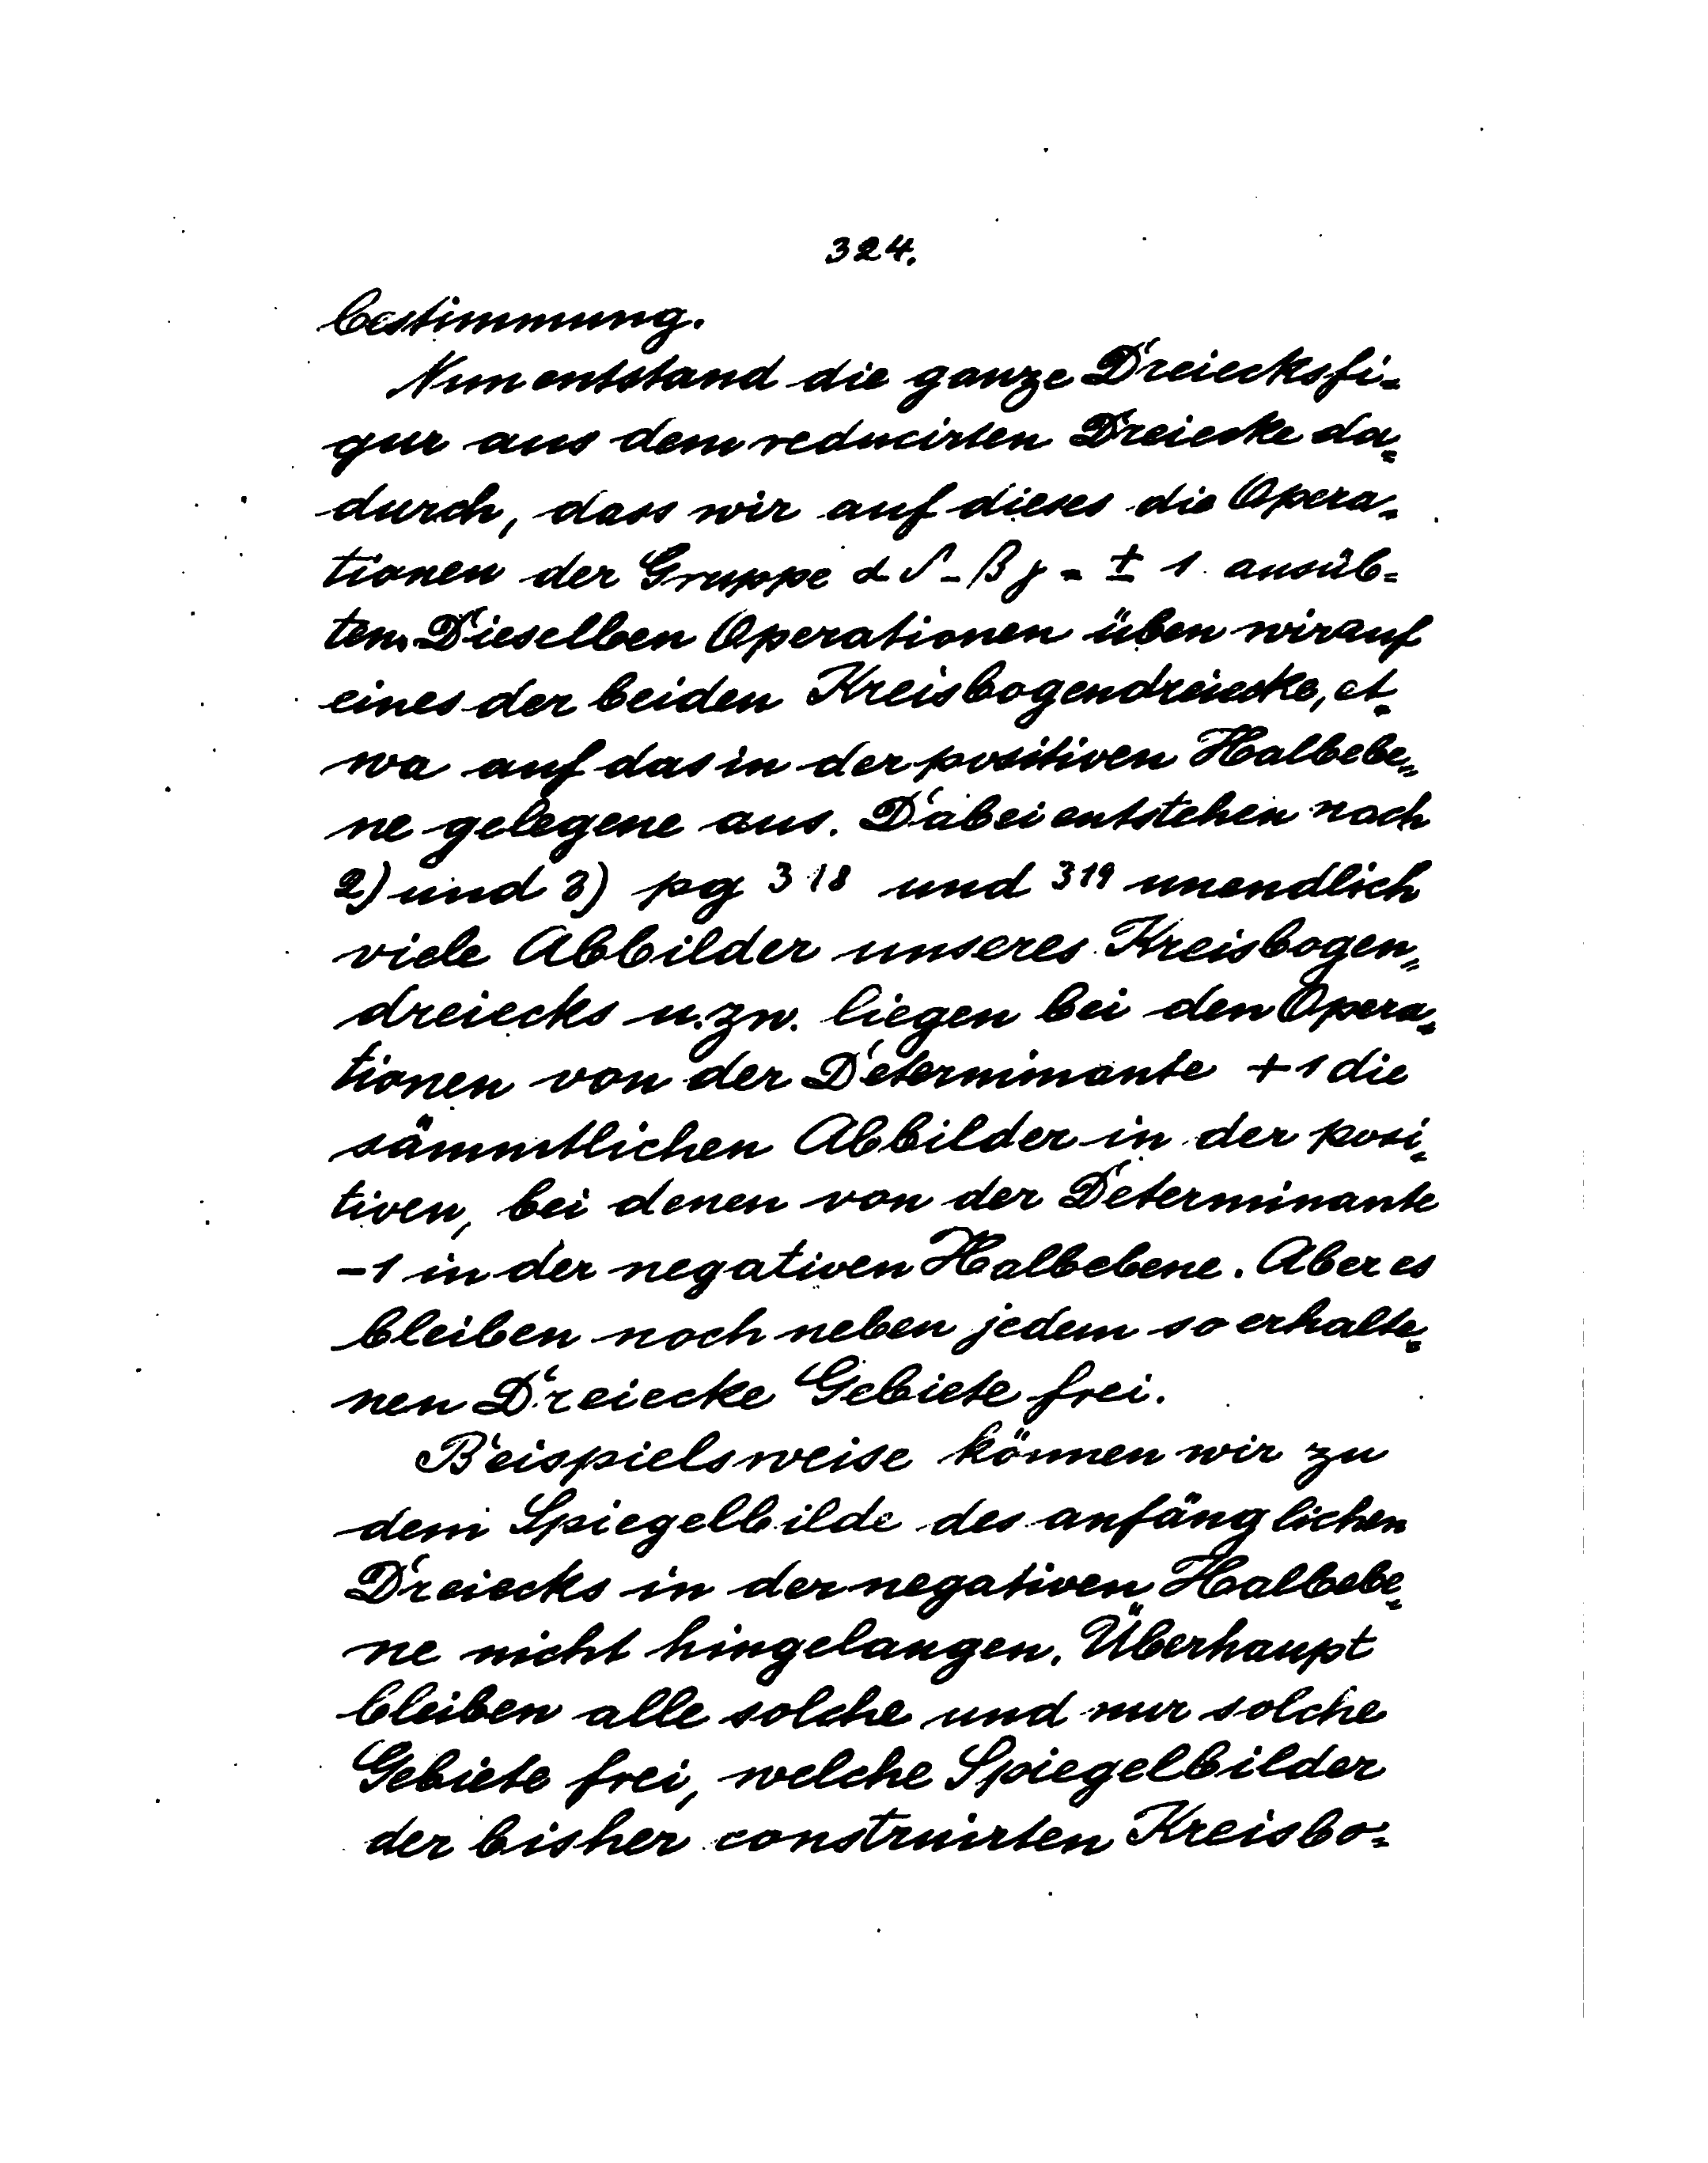 324.
bestimmung.
Nun entstand die ganze Dreiecksfi-
gur aus dem reducirten Dreiecke da-
durch, dass wir auf dieses die Opera-
tionen der Gruppe αδ-βγ = ± 1 ausüb-
ten. Dieselben Operationen üben wir auf
eines der beiden Kreisbogendreiecke, et-
wa auf das in der positiven Halbebe-
ne gelegene aus. Dabei entstehen nach
2) und 3) pg 318 und 319 unendlich
viele Abbilder unseres Kreisbogen-
dreiecks u. zw. liegen bei den Opera-
tionen von der Determinante +1 die
sämmtlichen Abbilder in der posi-
tiven, bei denen von der Determinante
-1 in der negativen Halbebene. Aber es
bleiben noch neben jedem so erhalte-
nen Dreiecke Gebiete frei.
Beispielsweise können wir zu
dem Spiegelbilde des anfänglichen
Dreiecks in der negativen Halbebe-
ne nicht hingelangen. Überhaupt
bleiben alle solche und nur solche
Gebiete frei, welche Spiegelbilder
der bisher construirten Kreisbo-